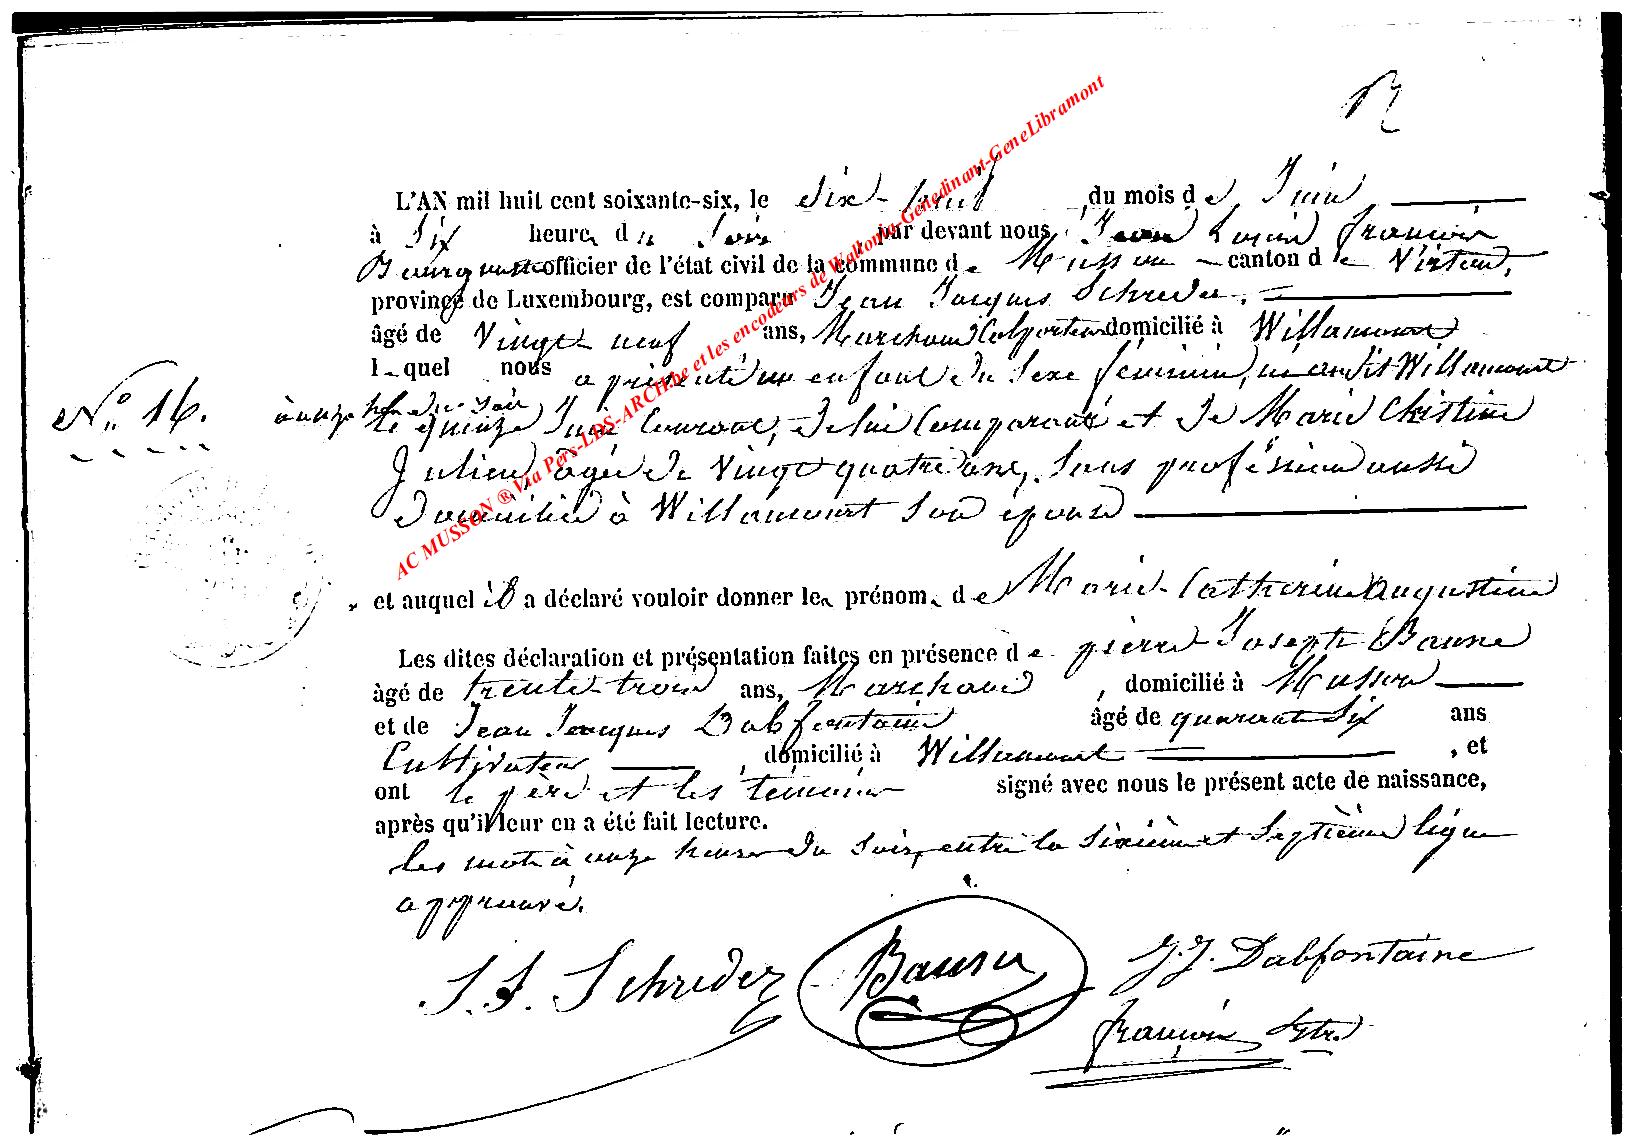 L'AN mil huit cent soixante-six, le dix-huit du mois de Juin
à Six heures du Soir par devant nous, Jean Louis François
Bourgmestre officier de l'état civil de la commune de Musson canton de Virton,
province de Luxembourg, est comparu Jean Jacques Schreder,
âgé de Vingt neuf ans, Marchand Colporteur domicilié à Willancourt
lequel nous a présenté un enfant du Sexe féminin, né audit Willancourt
à onze heures du soir
N° 16. le quinze Juin Courant, de lui Comparant et de Marie Christine
Julien, âgée de Vingt quatre ans, Sans profession aussi
domiciliée à Willancourt Son épouse
et auquel il a déclaré vouloir donner les prénoms de Marie-Catherine Augustine
Les dites déclaration et présentation faites en présence de pierre Joseph Bausne
âgé de trente-trois ans, Marchand, domicilié à Musson
et de Jean Jacques Dabfontaine âgé de quarante Six ans
Cultivateur, domicilié à Willancourt, et
ont le père et les témoins signé avec nous le présent acte de naissance,
après qu'il leur en a été fait lecture.
les mots à onze heures du Soir, entre la Sixième et Septième ligne
approuvé.
J. J. Schreder Bausne J. J. Dabfontaine
François
AC MUSSON ® Via Pers-LDS-ARCH.be et les encodeurs de Wallonia-Genedinant-GeneLibramont